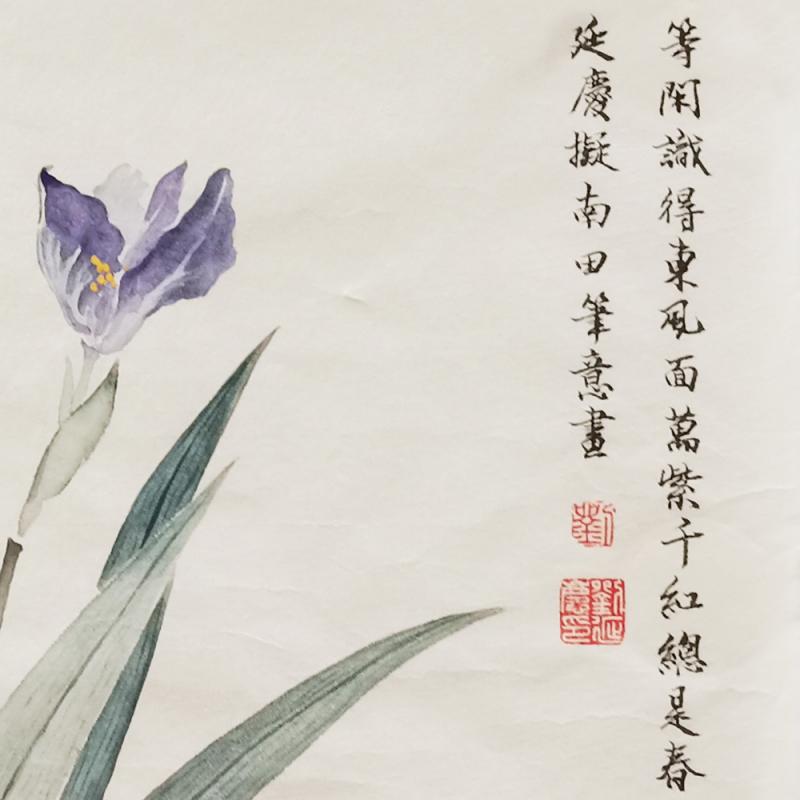 等閑識得東風面萬紫千紅總是春
延慶擬南田筆意畫
劉
劉延慶印